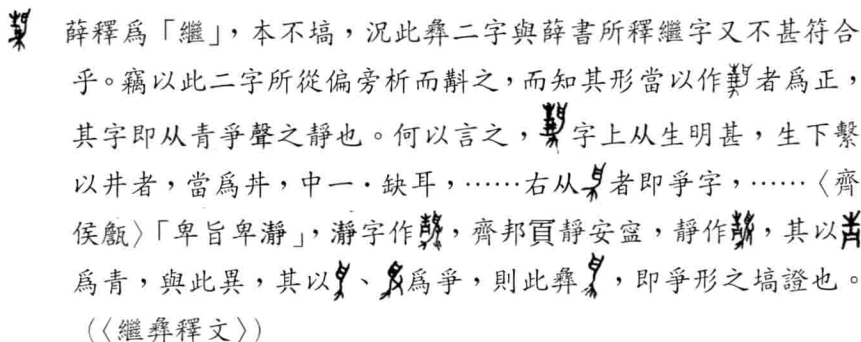 薛釋爲「繼」，本不塙，況此彝二字與薛書所釋繼字又不甚符合
乎。竊以此二字所從偏旁析而斠之，而知其形當以作者爲正，
其字即从青爭聲之靜也。何以言之，字上从生明甚，生下繫
以井者，當爲丼，中一・缺耳，……右从者即爭字，……〈齊
侯甔〉「卑旨卑瀞」，瀞字作，齊邦靜安寍，靜作，其以
爲青，與此異，其以、爲爭，則此彝，即爭形之塙證也。
（〈繼彝釋文〉）